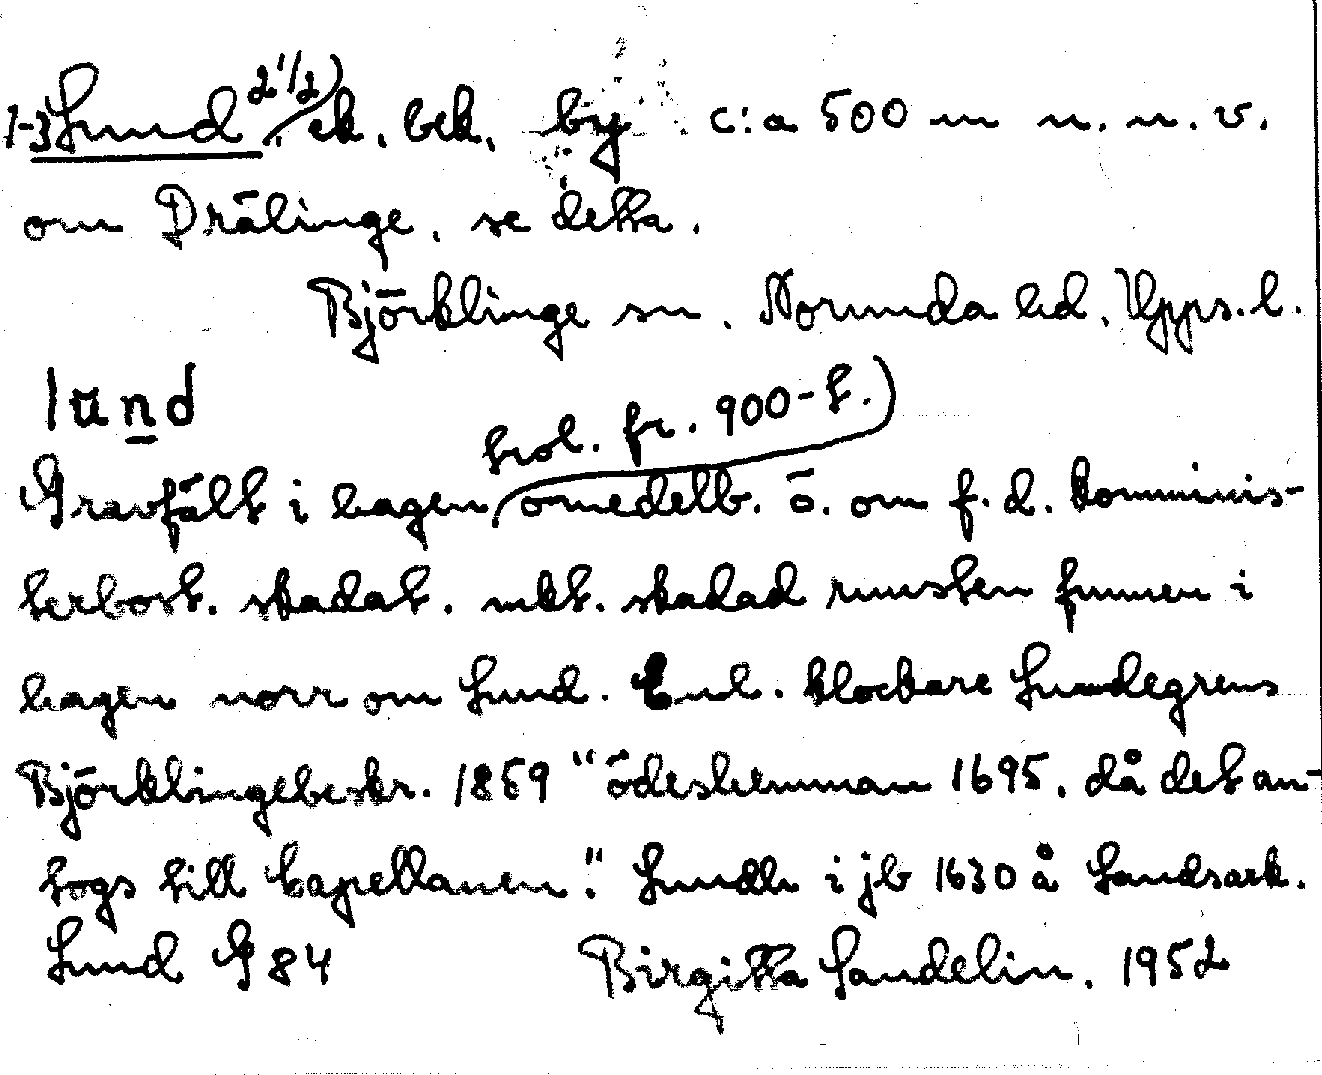 1-3 Lund 2 1/2 . ek. bek. by . c:a 500 m n. n. v.
om Drälinge, se detta.
Björklinge sn. Norunda hd. Upps. l.
lund
trol. fr. 900-t.
Gravfält i hagen omedelb. ö. om f. d. komminis-
terbost. skadat. mkt. skadad runsten funnen i
hagen norr om Lund. Enl. klockare Lundegrens
Björklingebeskr. 1859 "ödeshemman 1695, då det an-
togs till Capellanen". Lundh i jb 1630 å Landsark.
Lund G 84 Birgitta Sandelin, 1952